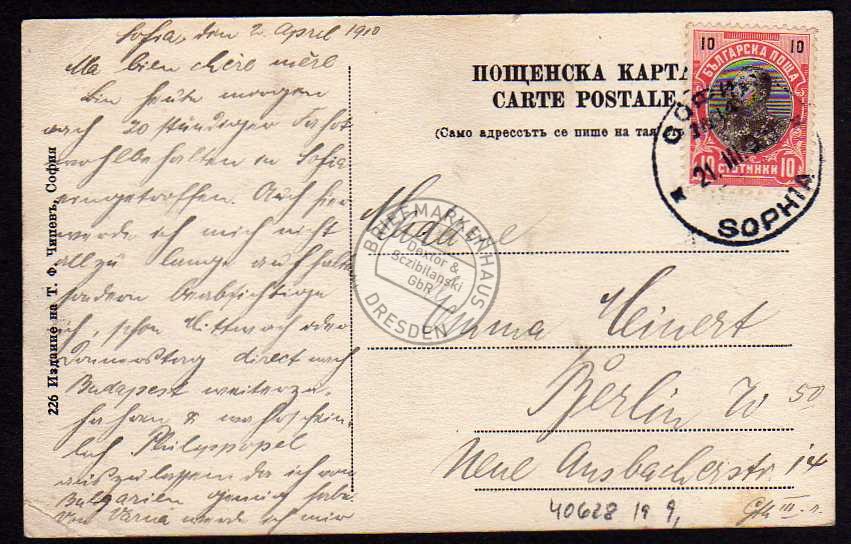 Sofia, den 2. April 1910
Ma bien chère mère
Bin heute morgen
nach 20 stündiger Fahrt
wohlbehalten in Sofia
eingetroffen. Auch hier
werde ich mich nicht
allzu lange aufhalten
sondern beabsichtige
ich, schon Mittwoch oder
Donnerstag direct nach
Budapest weiterzu-
fahren & wahrschein-
lich Philippopel
auszulassen da ich von
Bulgarien genug habe.
Von Varna werde ich mir
226 Издание на Т. Ф. Чипевъ, София
ПОЩЕНСКА КАРТА
CARTE POSTALE
(Само адресътъ се пише на тая
10 10
БЪЛГАРСКА ПОЩА
10 СТОТИНКИ 10
21. III.
SOPHIA
Madame
Emma Meinert
Berlin W 50
Neue Ansbacherstr 14
BRIEFMARKENHAUS
Dextor &
Sczibilanski
GbR
DRESDEN
40628 19 9,
III